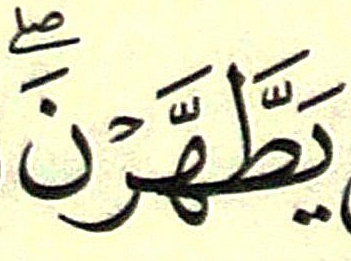 يَطَّهَّرْنَۖ